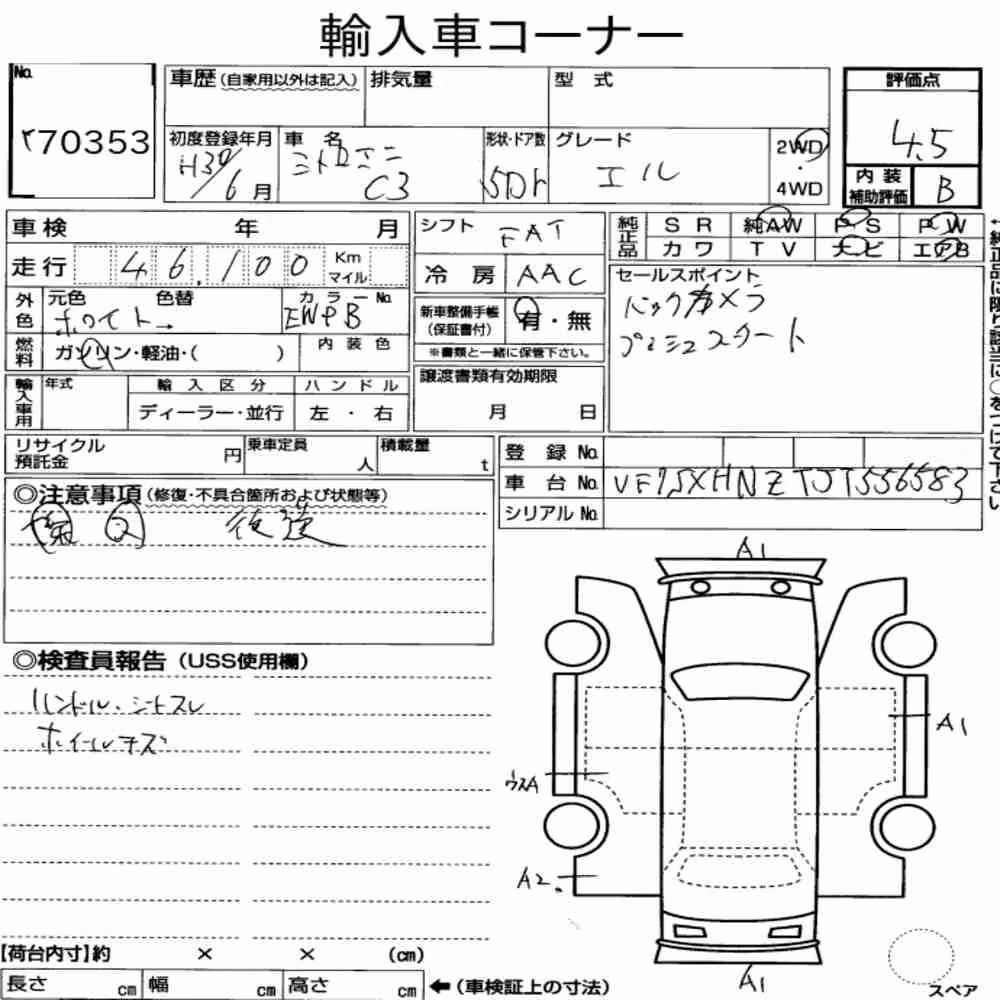 輸入車コーナー
No.
70353
車歴(自家用以外は記入)
排気量
型 式
評価点
4.5
初度登録年月
H30/6月
車 名
シトロエン
C3
形状・ドア数
5Dr
グレード
エル
2WD
・
4WD
内装補助評価
B
車検 年 月
シフト
FAT
純正品
SR 純AW PS PW
カワ TV ナビ エアB
走行
46,100
Km
マイル
冷房
AAC
外色
元色 色替
ホワイト→
カラーNo.
EWPB
新車整備手帳
(保証書付)
有・無
※書類と一緒に保管下さい。
セールスポイント
バックカメラ
プッシュスタート
燃料
ガソリン・軽油・( )
内装色
輸入車用
年式
輸入区分
ハンドル
ディーラー・並行
左・右
譲渡書類有効期限
月 日
リサイクル
預託金
円
乗車定員
人
積載量
t
登録No.
車台No.
VF7SXHNZTJT556583
シリアルNo.
◎注意事項(修復・不具合箇所および状態等)
後送
◎検査員報告(USS使用欄)
ハンドル・シートスレ
ホイールキズ
A1
A1
ウスA
A2
A1
【荷台内寸】約 × × (cm)
長さ cm 幅 cm 高さ cm
←(車検証上の寸法)
スペア
←純正品に限り該当に○をつけて下さい